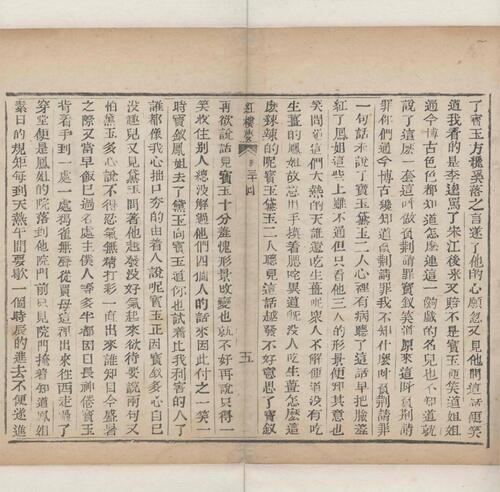 了寶玉方纔奚落之言遂了他的心願忽又見他問這話便笑
道我看的是李逵罵了宋江後來又賠不是寶玉便笑道姐姐
通今博古色色都知道怎麼連這一齣戲的名兒也不知道就
說了這麼一套這叫做負荊請罪寶釵笑道原來這叫負荊請
罪你們通今博古纔知道負荊請罪我不知什麼呌負荊請罪
一句話未說了寶玉黛玉二人心裡有病聽了這話早把臉羞
紅了鳳姐這些上雖不通但只看他三人的形景便知其意也
笑問道這們大熱的天誰還吃生薑呢眾人不解便道沒有吃
生薑的鳳姐故意用手摸着腮詫異道旣沒人吃生薑怎麼這
麼辣辣的呢寶玉黛玉二人聽見這話越發不好意思了寶釵
紅樓夢 三十回 五
再欲說話見寶玉十分羞愧形景改變也就不好再說只得一
笑收住別人總沒解過他們四個人的話來因此付之一笑一
時寶釵鳳姐去了黛玉向寶玉道你也試着比我利害的人了
誰都像我心拙口夯的由着人說呢寶玉正因寶釵多心自己
沒趣兒又見黛玉問著他越發沒好氣起來欲待要說兩句又
怕黛玉多心說不得忍氣無精打彩一直出來誰知目今盛暑
之際又當早飯已過各處主僕人等多半都因日長神倦寶玉
背着手到一處一處鴉雀無聲從賈母這裡出來往西走過了
穿堂便是鳳姐的院落到他院門前只見院門掩着知道鳳姐
素日的規矩每到天熱午間要歇一個時辰的進去不便遂進